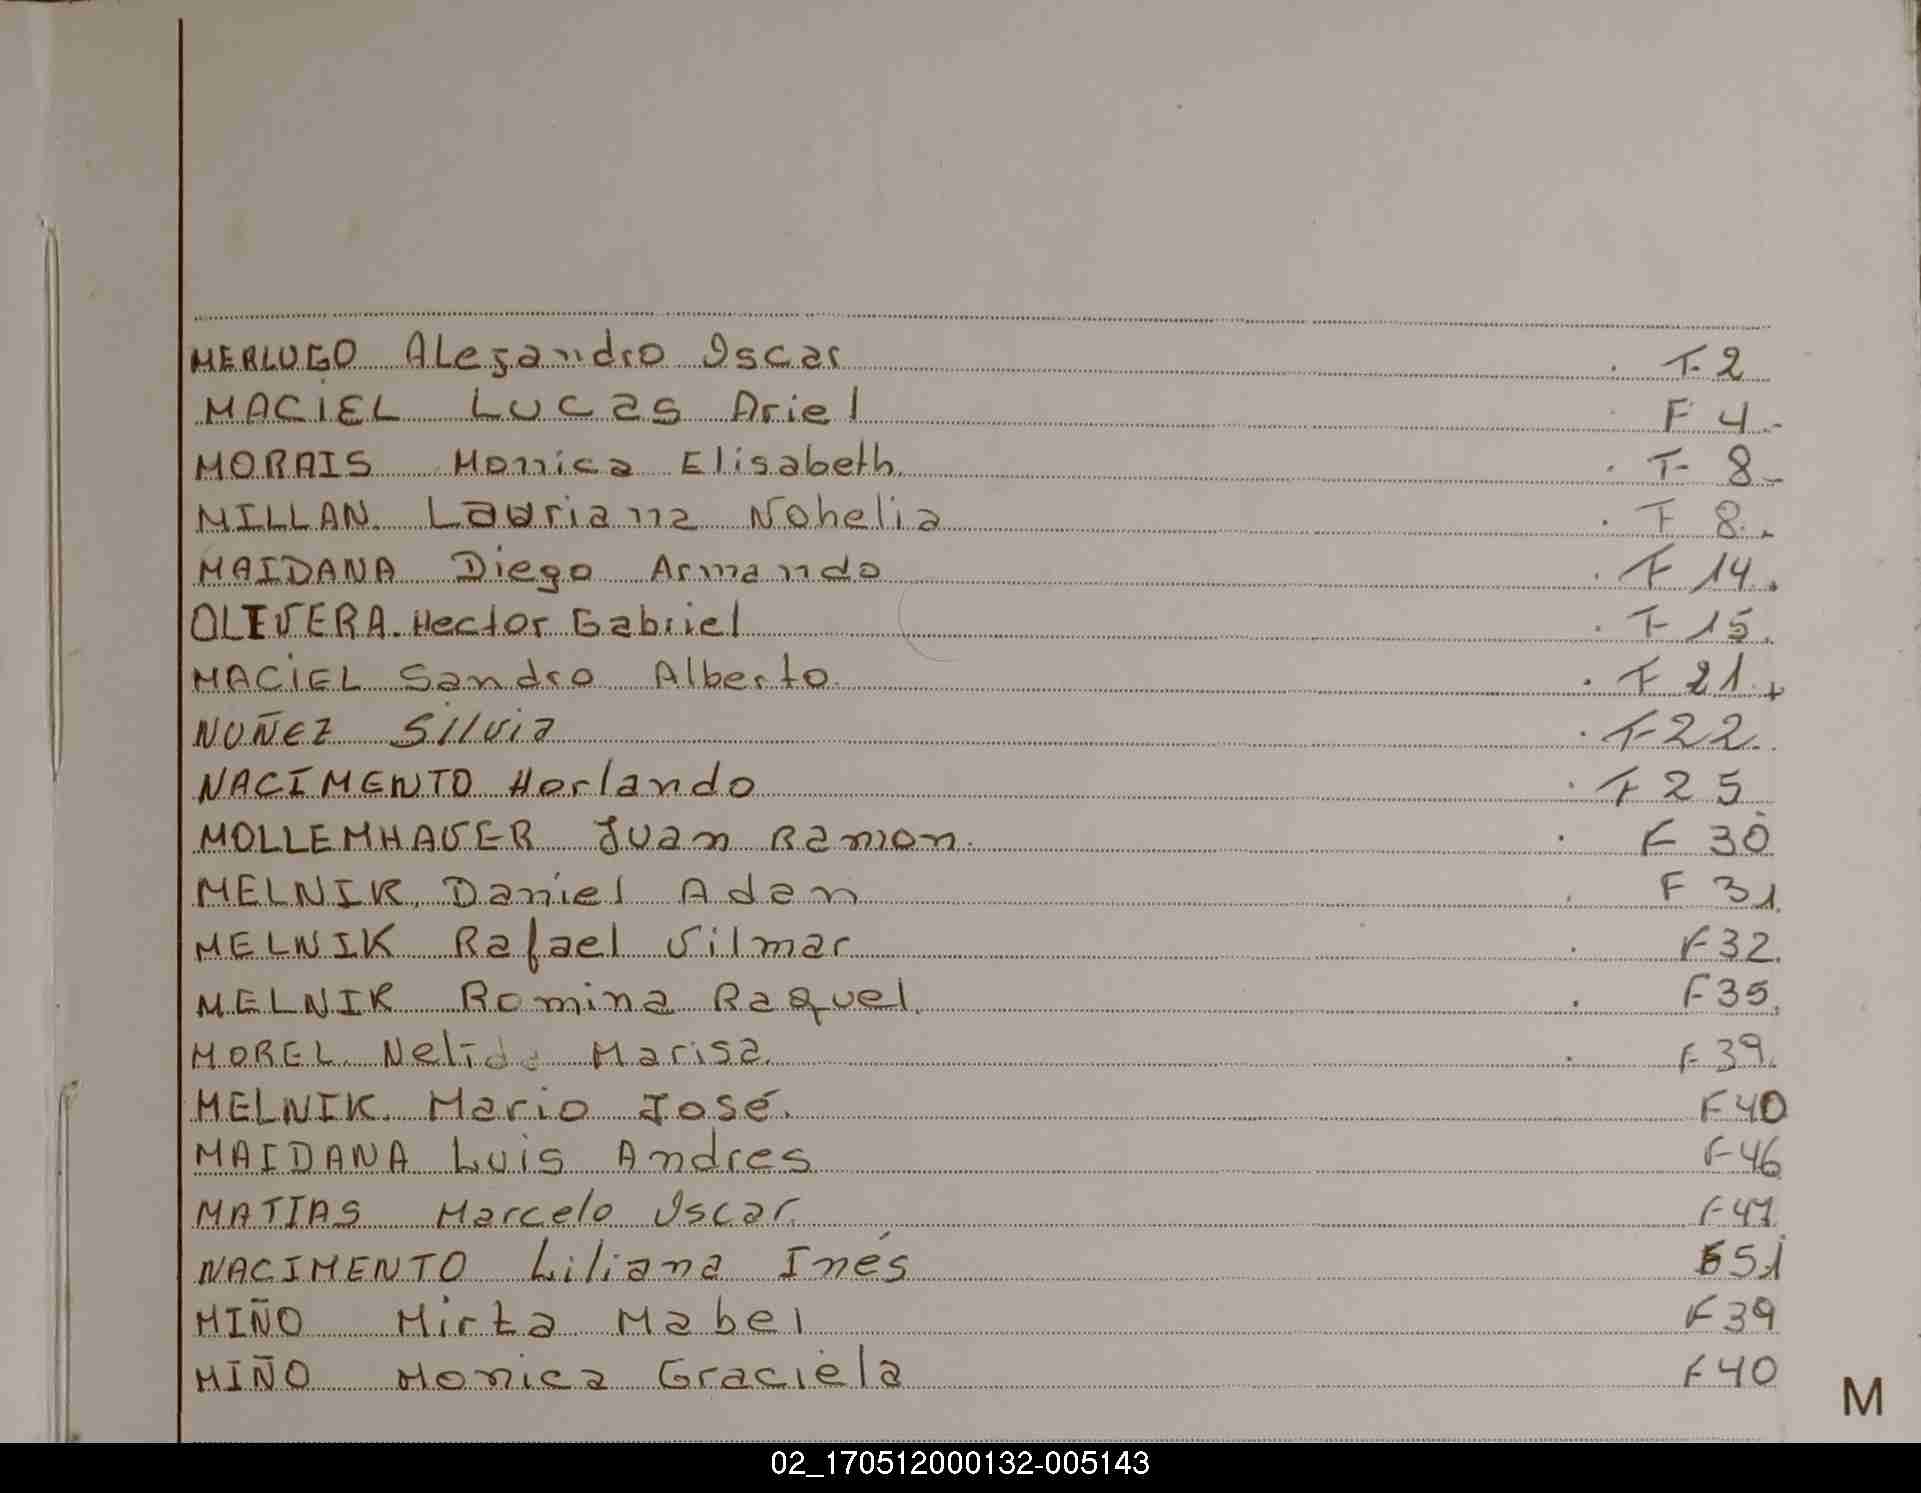 MERLUGO Alejandro Oscar . F. 2
MACIEL Lucas Ariel F 4.-
MORAIS Monica Elisabeth. . F 8-
MILLAN. Lauriana Nohelia . F 8.
MAIDANA Diego Armando . F 14.
OLIVERA. Hector Gabriel . F 15.
MACIEL Sandro Alberto. . F 21.
NUÑEZ Silvia . F 22.
NACIMENTO Horlando . F 25
MOLLEMHAVER Juan Ramon. . F 30
MELNIK. Daniel Adan . F 31.
MELNIK Rafael Vilmar . F 32.
MELNIK Romina Raquel. . F 35.
MOREL. Nelida Marisa. . F 39.
MELNIK. Mario José. F 40
MAIDANA Luis Andres F 46
MATIAS Marcelo Oscar. F 47
NACIMENTO Liliana Inés F 51
MIÑO Mirta Mabel F 39
MIÑO Monica Graciela F 40
M
02_170512000132-005143